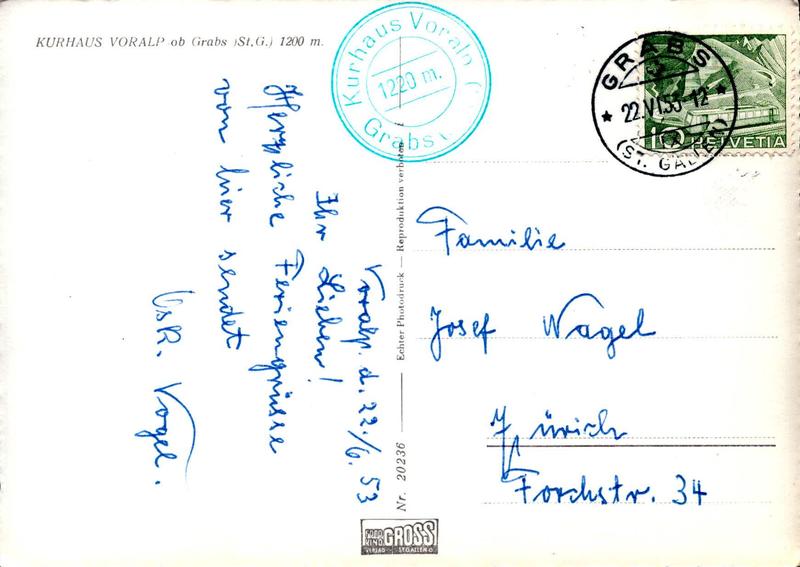 KURHAUS VORALP ob Grabs (St.G.) 1200 m.
Kurhaus Voralp
1220 m.
Grabs
GRABS
22.VI.53-12
(ST. GALLEN)
10 HELVETIA
Voralp. d. 22./6. 53
Ihr Lieben!
Herzliche Feriengrüsse
von hier sendet
Vogel.
Familie
Josef Nagel
Zürich
Forchstr. 34
Nr. 20236 — Echter Photodruck — Reproduktion verboten
FOTO
KINO
GROSS
VERLAG ST.GALLEN